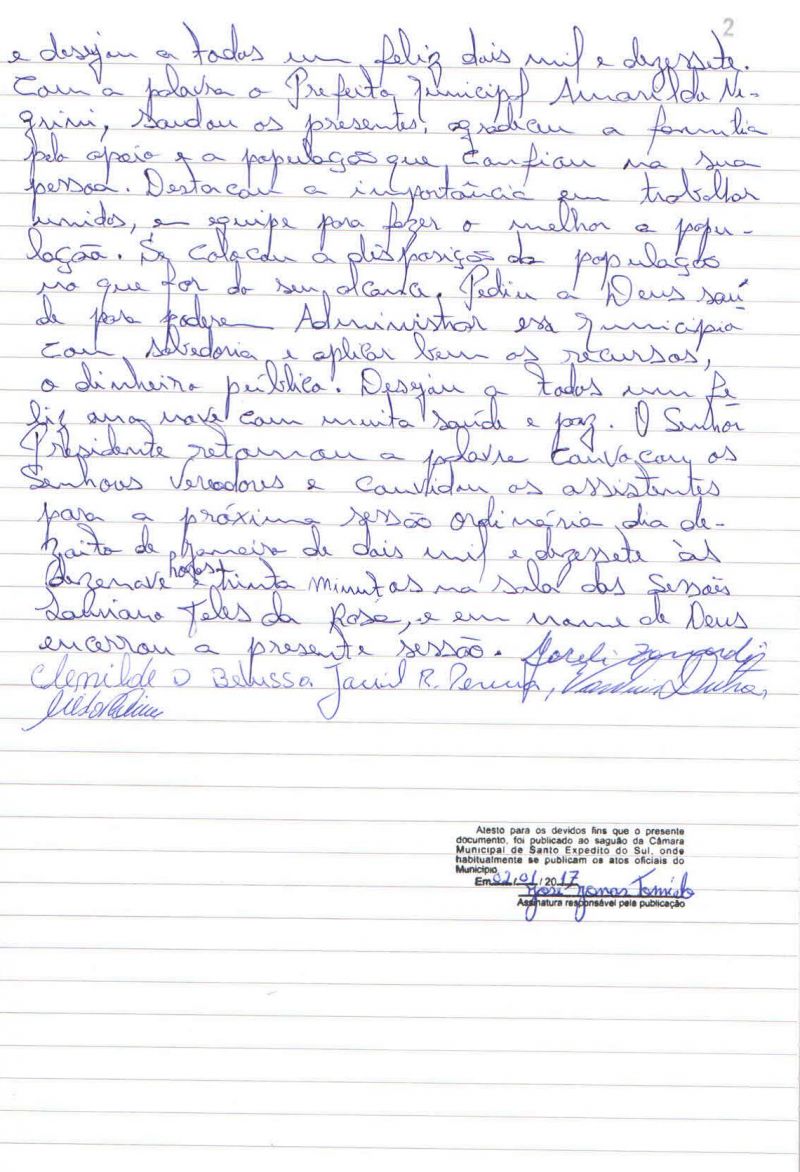 2
e desejou a todos um feliz dois mil e dezessete.
Com a palavra o Prefeito Municipal Amarildo Ne-
grini, saudou os presentes, agradeceu a família
pelo apoio e a população que confiou na sua
pessoa. Destacou a importância em trabalhar
unidos, em equipe para fazer o melhor a popu-
lação. Se colocou a disposição da população
no que for do seu alcance. Pediu a Deus saú
de para poderem Administrar esse Município
com sabedoria e aplicar bem os recursos,
o dinheiro público. Desejou a todos um fe
liz ano novo com muita saúde e paz. O Senhor
Presidente retornou a palavra convocou os
Senhores Vereadores e convidou os assistentes
para a próxima sessão ordinária dia de-
zoito de janeiro de dois mil e dezessete às
dezenove horas e trinta minutos na sala das Sessões
Teles da Rosa, e em nome de Deus
encerrou a presente sessão.
Clenilde D Belussa Jamil R. Pereira, Dutra,
Atesto para os devidos fins que o presente
documento, foi publicado ao saguão da Câmara
Municipal de Santo Expedito do Sul, onde
habitualmente se publicam os atos oficiais do
Município
Em 02/01/2017
José
Assinatura responsável pela publicação